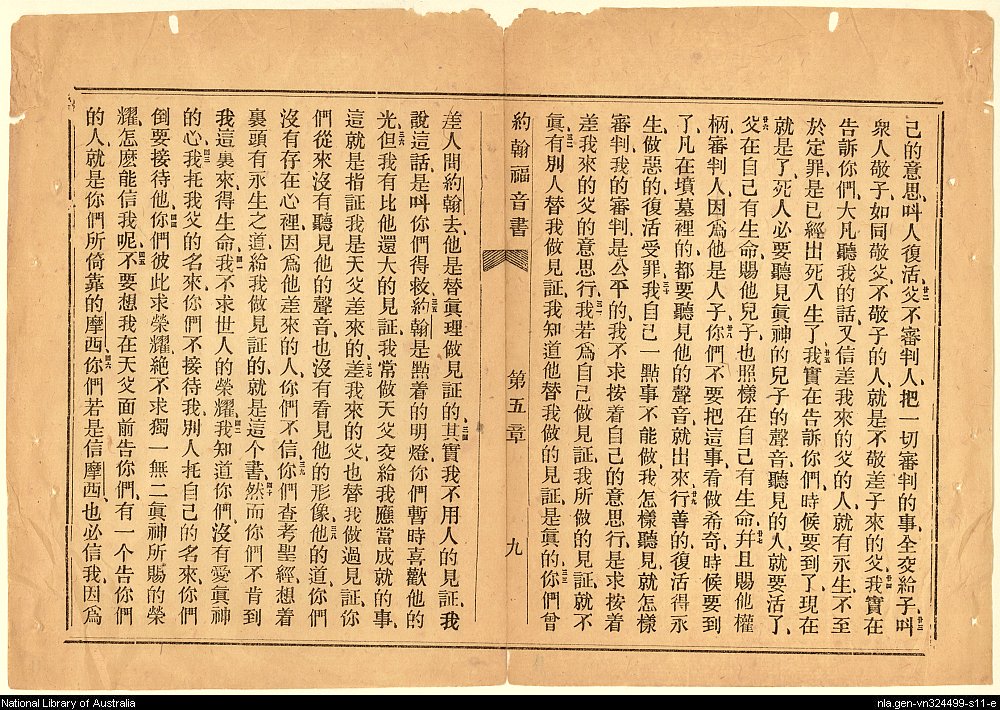 己的意思呌人復活、廿二父不審判人、把一切審判的事、全交給子、廿三呌
衆人敬子、如同敬父、不敬子的人、就是不敬差子來的父、廿四我實在
告訴你們、大凡聽我的話、又信差我來的父的人、就有永生、不至
於定罪、是已經出死入生了、廿五我實在告訴你們、時候要到了、現在
就是了、死人必要聽見眞神的兒子的聲音、聽見的人、就要活了、
廿六父在自己有生命、賜他兒子也照樣在自己有生命、廿七幷且賜他權
柄審判人、因爲他是人子、廿八你們不要把這事看做希奇、時候要到
了、凡在墳墓裡的、都要聽見他的聲音、就出來、廿九行善的復活得永
生、做惡的復活受罪、三十我自己一點事不能做、我怎樣聽見、就怎樣
審判、我的審判是公平的、我不求按着自己的意思行、是求按着
差我來的父的意思行、三一我若爲自己做見証、我所做的見証就不
眞、三二有別人替我做見証、我知道他替我做的見証是眞的、三三你們曾
約翰福音書 第五章 九
差人問約翰去、他是替眞理做見証的、三四其實我不用人的見証、我
說這話、是呌你們得救、三五約翰是點着的明燈、你們暫時喜歡他的
光、三六但我有比他還大的見証、我常做天父交給我應當成就的事、
這就是指証我是天父差來的、三七差我來的父、也替我做過見証、你
們從來沒有聽見他的聲音、也沒有看見他的形像、三八他的道、你們
沒有存在心裡、因爲他差來的人、你們不信、三九你們查考聖經、想着
裏頭有永生之道、給我做見証的、就是這个書、四十然而你們不肯到
我這裏來得生命、四一我不求世人的榮耀、四二我知道你們、沒有愛眞神
的心、四三我托我父的名來、你們不接待我、別人托自己的名來、你們
倒要接待他、四四你們彼此求榮耀、絶不求獨一無二眞神所賜的榮
耀、怎麽能信我呢、四五不要想我在天父面前告你們、有一个告你們
的人、就是你們所倚靠的摩西、四六你們若是信摩西、也必信我、因爲
National Library of Australia
nla.gen-vn324499-s11-e